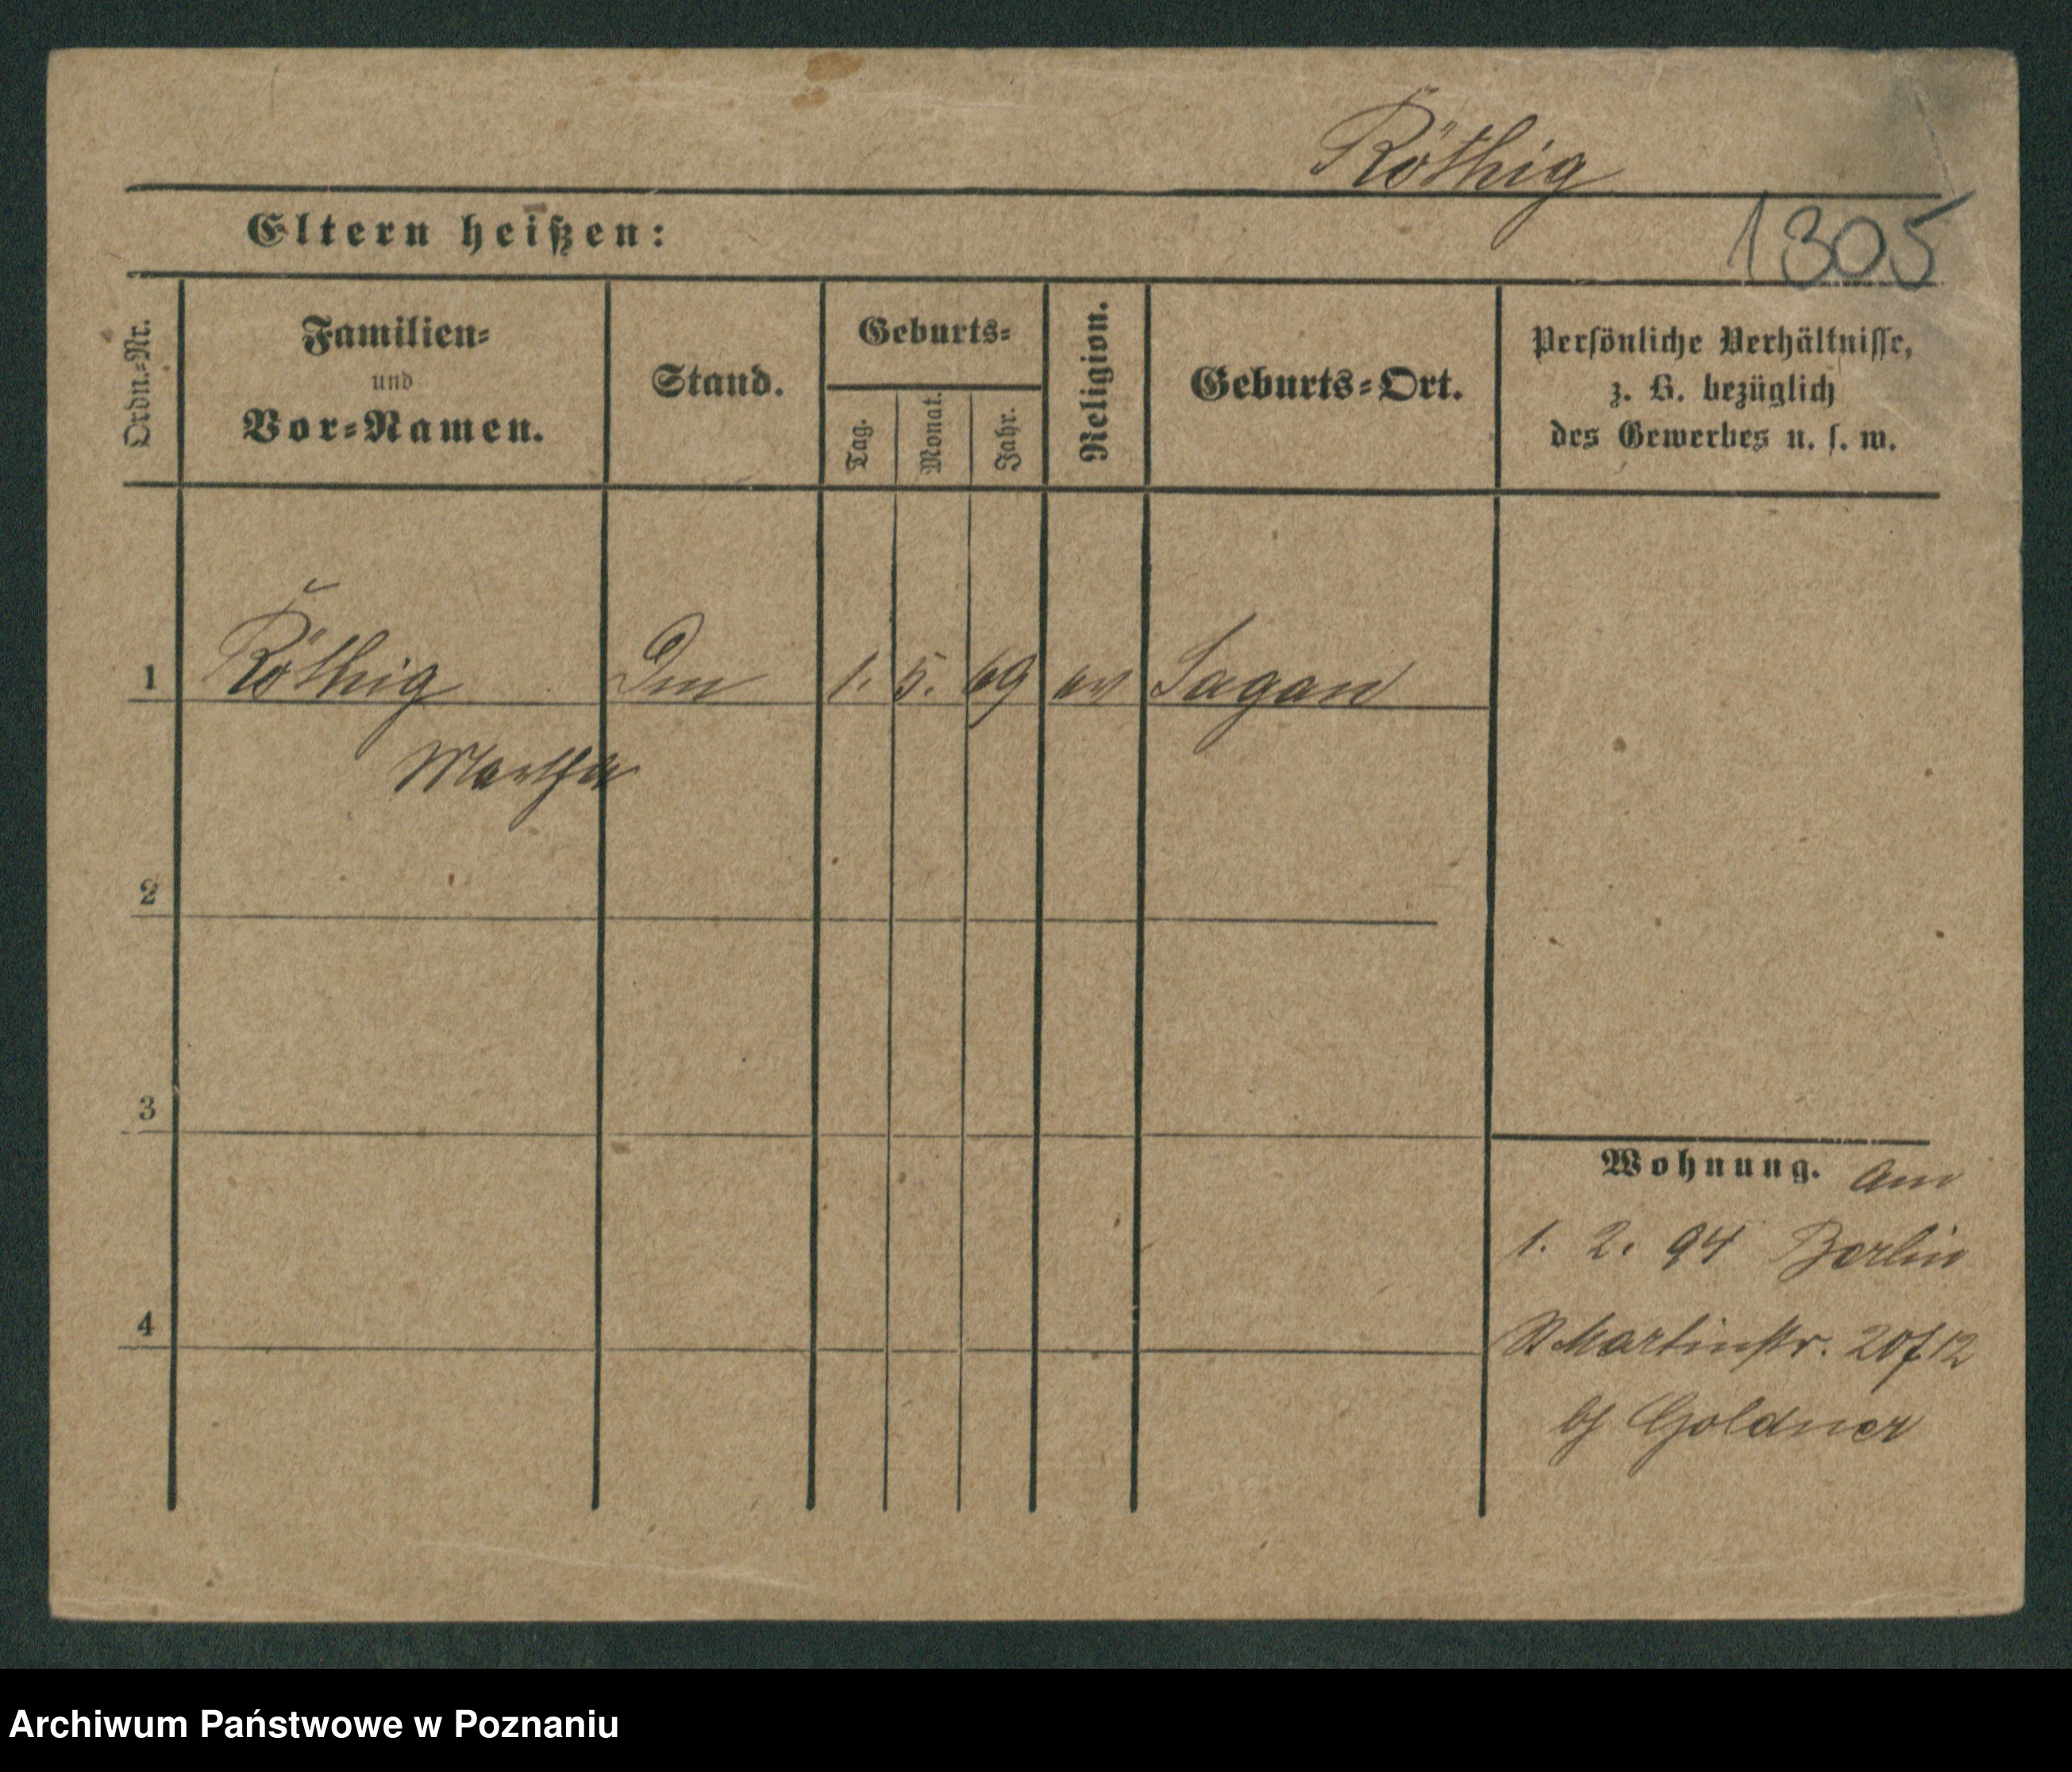 Röthig
Eltern heißen:
1305
Ordn.-Nr.
Familien-
und
Vor-Namen.
Stand.
Geburts-
Tag.
Monat.
Jahr.
Religion.
Geburts-Ort.
Persönliche Verhältnisse,
z. B. bezüglich
des Gewerbes u. s. w.
1 Röthig 1. 5. 69 ev Sagan
Martha
2
3
Wohnung. Am
1. 2. 94 Berlin
4
St Martinstr. 20/12
bj Goldner
Archiwum Państwowe w Poznaniu